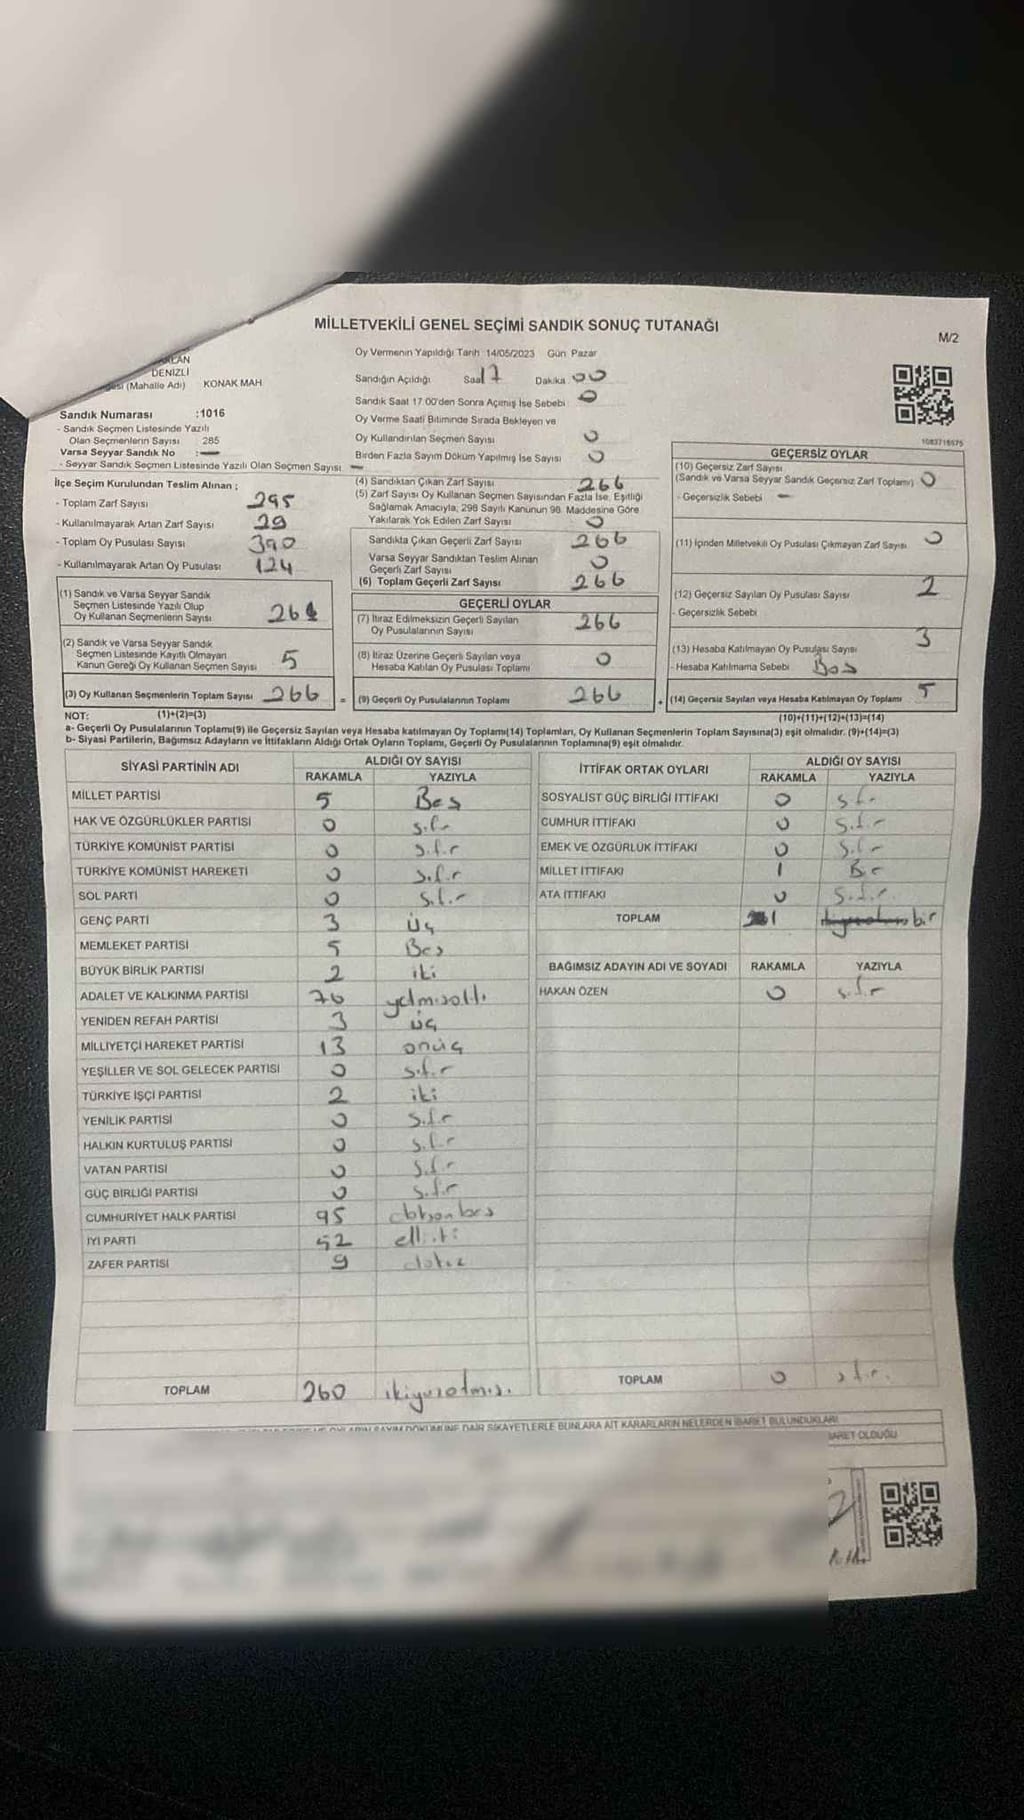 MİLLETVEKİLİ GENEL SEÇİMİ SANDIK SONUÇ TUTANAĞI
M/2
DENİZLİ
(Mahalle Adı) KONAK MAH
Sandık Numarası :1016
- Sandık Seçmen Listesinde Yazılı
Olan Seçmenlerin Sayısı 285
Varsa Seyyar Sandık No :-
- Seyyar Sandık Seçmen Listesinde Yazılı Olan Seçmen Sayısı -
Oy Vermenin Yapıldığı Tarih 14/05/2023 Gün Pazar
Sandığın Açıldığı Saat 17 Dakika 00
Sandık Saat 17 00'den Sonra Açımış İse Sebebi 0
Oy Verme Saati Bitiminde Sırada Bekleyen ve
Oy Kullandırılan Seçmen Sayısı 0
Birden Fazla Sayım Döküm Yapılmış İse Sayısı 0
1083716575
İlçe Seçim Kurulundan Teslim Alınan ;
- Toplam Zarf Sayısı 295
- Kullanılmayarak Artan Zarf Sayısı 29
- Toplam Oy Pusulası Sayısı 390
- Kullanılmayarak Artan Oy Pusulası 124
(1) Sandık ve Varsa Seyyar Sandık
Seçmen Listesinde Yazılı Olup
Oy Kullanan Seçmenlerin Sayısı 261
(2) Sandık ve Varsa Seyyar Sandık
Seçmen Listesinde Kayıtlı Olmayan
Kanun Gereği Oy Kullanan Seçmen Sayısı 5
(3) Oy Kullanan Seçmenlerin Toplam Sayısı 266
(4) Sandıktan Çıkan Zarf Sayısı 266
(5) Zarf Sayısı Oy Kullanan Seçmen Sayısından Fazla İse, Eşitliği
Sağlamak Amacıyla, 298 Sayılı Kanunun 98. Maddesine Göre
Yakılarak Yok Edilen Zarf Sayısı 0
Sandıkta Çıkan Geçerli Zarf Sayısı 266
Varsa Seyyar Sandıktan Teslim Alınan
Geçerli Zarf Sayısı 0
(6) Toplam Geçerli Zarf Sayısı 266
GEÇERLİ OYLAR
(7) İtiraz Edilmeksizin Geçerli Sayılan
Oy Pusulalarının Sayısı 266
(8) İtiraz Üzerine Geçerli Sayılan veya
Hesaba Katılan Oy Pusulası Toplamı 0
= (9) Geçerli Oy Pusulalarının Toplamı 266
GEÇERSİZ OYLAR
(10) Geçersiz Zarf Sayısı
(Sandık ve Varsa Seyyar Sandık Geçersiz Zarf Toplamı) 0
- Geçersizlik Sebebi -
(11) İçinden Milletvekili Oy Pusulası Çıkmayan Zarf Sayısı 0
(12) Geçersiz Sayılan Oy Pusulası Sayısı 2
- Geçersizlik Sebebi
(13) Hesaba Katılmayan Oy Pusulası Sayısı 3
- Hesaba Katılmama Sebebi Boş
+ (14) Geçersiz Sayılan veya Hesaba Katılmayan Oy Toplamı 5
NOT: (1)+(2)=(3)
(10)+(11)+(12)+(13)=(14)
a- Geçerli Oy Pusulalarının Toplamı(9) ile Geçersiz Sayılan veya Hesaba katılmayan Oy Toplamı(14) Toplamları, Oy Kullanan Seçmenlerin Toplam Sayısına(3) eşit olmalıdır. (9)+(14)=(3)
b- Siyasi Partilerin, Bağımsız Adayların ve İttifakların Aldığı Ortak Oyların Toplamı, Geçerli Oy Pusulalarının Toplamına(9) eşit olmalıdır.
SİYASİ PARTİNİN ADI
ALDIĞI OY SAYISI
RAKAMLA YAZIYLA
MİLLET PARTİSİ 5 Beş
HAK VE ÖZGÜRLÜKLER PARTİSİ 0 sıfır
TÜRKİYE KOMÜNİST PARTİSİ 0 sıfır
TÜRKİYE KOMÜNİST HAREKETİ 0 sıfır
SOL PARTİ 0 sıfır
GENÇ PARTİ 3 üç
MEMLEKET PARTİSİ 5 Beş
BÜYÜK BİRLİK PARTİSİ 2 iki
ADALET VE KALKINMA PARTİSİ 76 yetmişaltı
YENİDEN REFAH PARTİSİ 3 üç
MİLLİYETÇİ HAREKET PARTİSİ 13 onüç
YEŞİLLER VE SOL GELECEK PARTİSİ 0 sıfır
TÜRKİYE İŞÇİ PARTİSİ 2 iki
YENİLİK PARTİSİ 0 sıfır
HALKIN KURTULUŞ PARTİSİ 0 sıfır
VATAN PARTİSİ 0 sıfır
GÜÇ BİRLİĞİ PARTİSİ 0 sıfır
CUMHURİYET HALK PARTİSİ 95 doksanbeş
İYİ PARTİ 52 elliiki
ZAFER PARTİSİ 9 dokuz
TOPLAM 260 ikiyüzaltmış.
İTTİFAK ORTAK OYLARI
ALDIĞI OY SAYISI
RAKAMLA YAZIYLA
SOSYALİST GÜÇ BİRLİĞİ İTTİFAKI 0 sıfır
CUMHUR İTTİFAKI 0 sıfır
EMEK VE ÖZGÜRLÜK İTTİFAKI 0 sıfır
MİLLET İTTİFAKI 1 Bir
ATA İTTİFAKI 0 sıfır
TOPLAM 1 bir
BAĞIMSIZ ADAYIN ADI VE SOYADI RAKAMLA YAZIYLA
HAKAN ÖZEN 0 sıfır
TOPLAM 0 sıfır.
SAYIM DÖKÜMÜNE DAİR ŞİKAYETLERLE BUNLARA AİT KARARLARIN NELERDEN İBARET BULUNDUKLARI
OLDUĞU